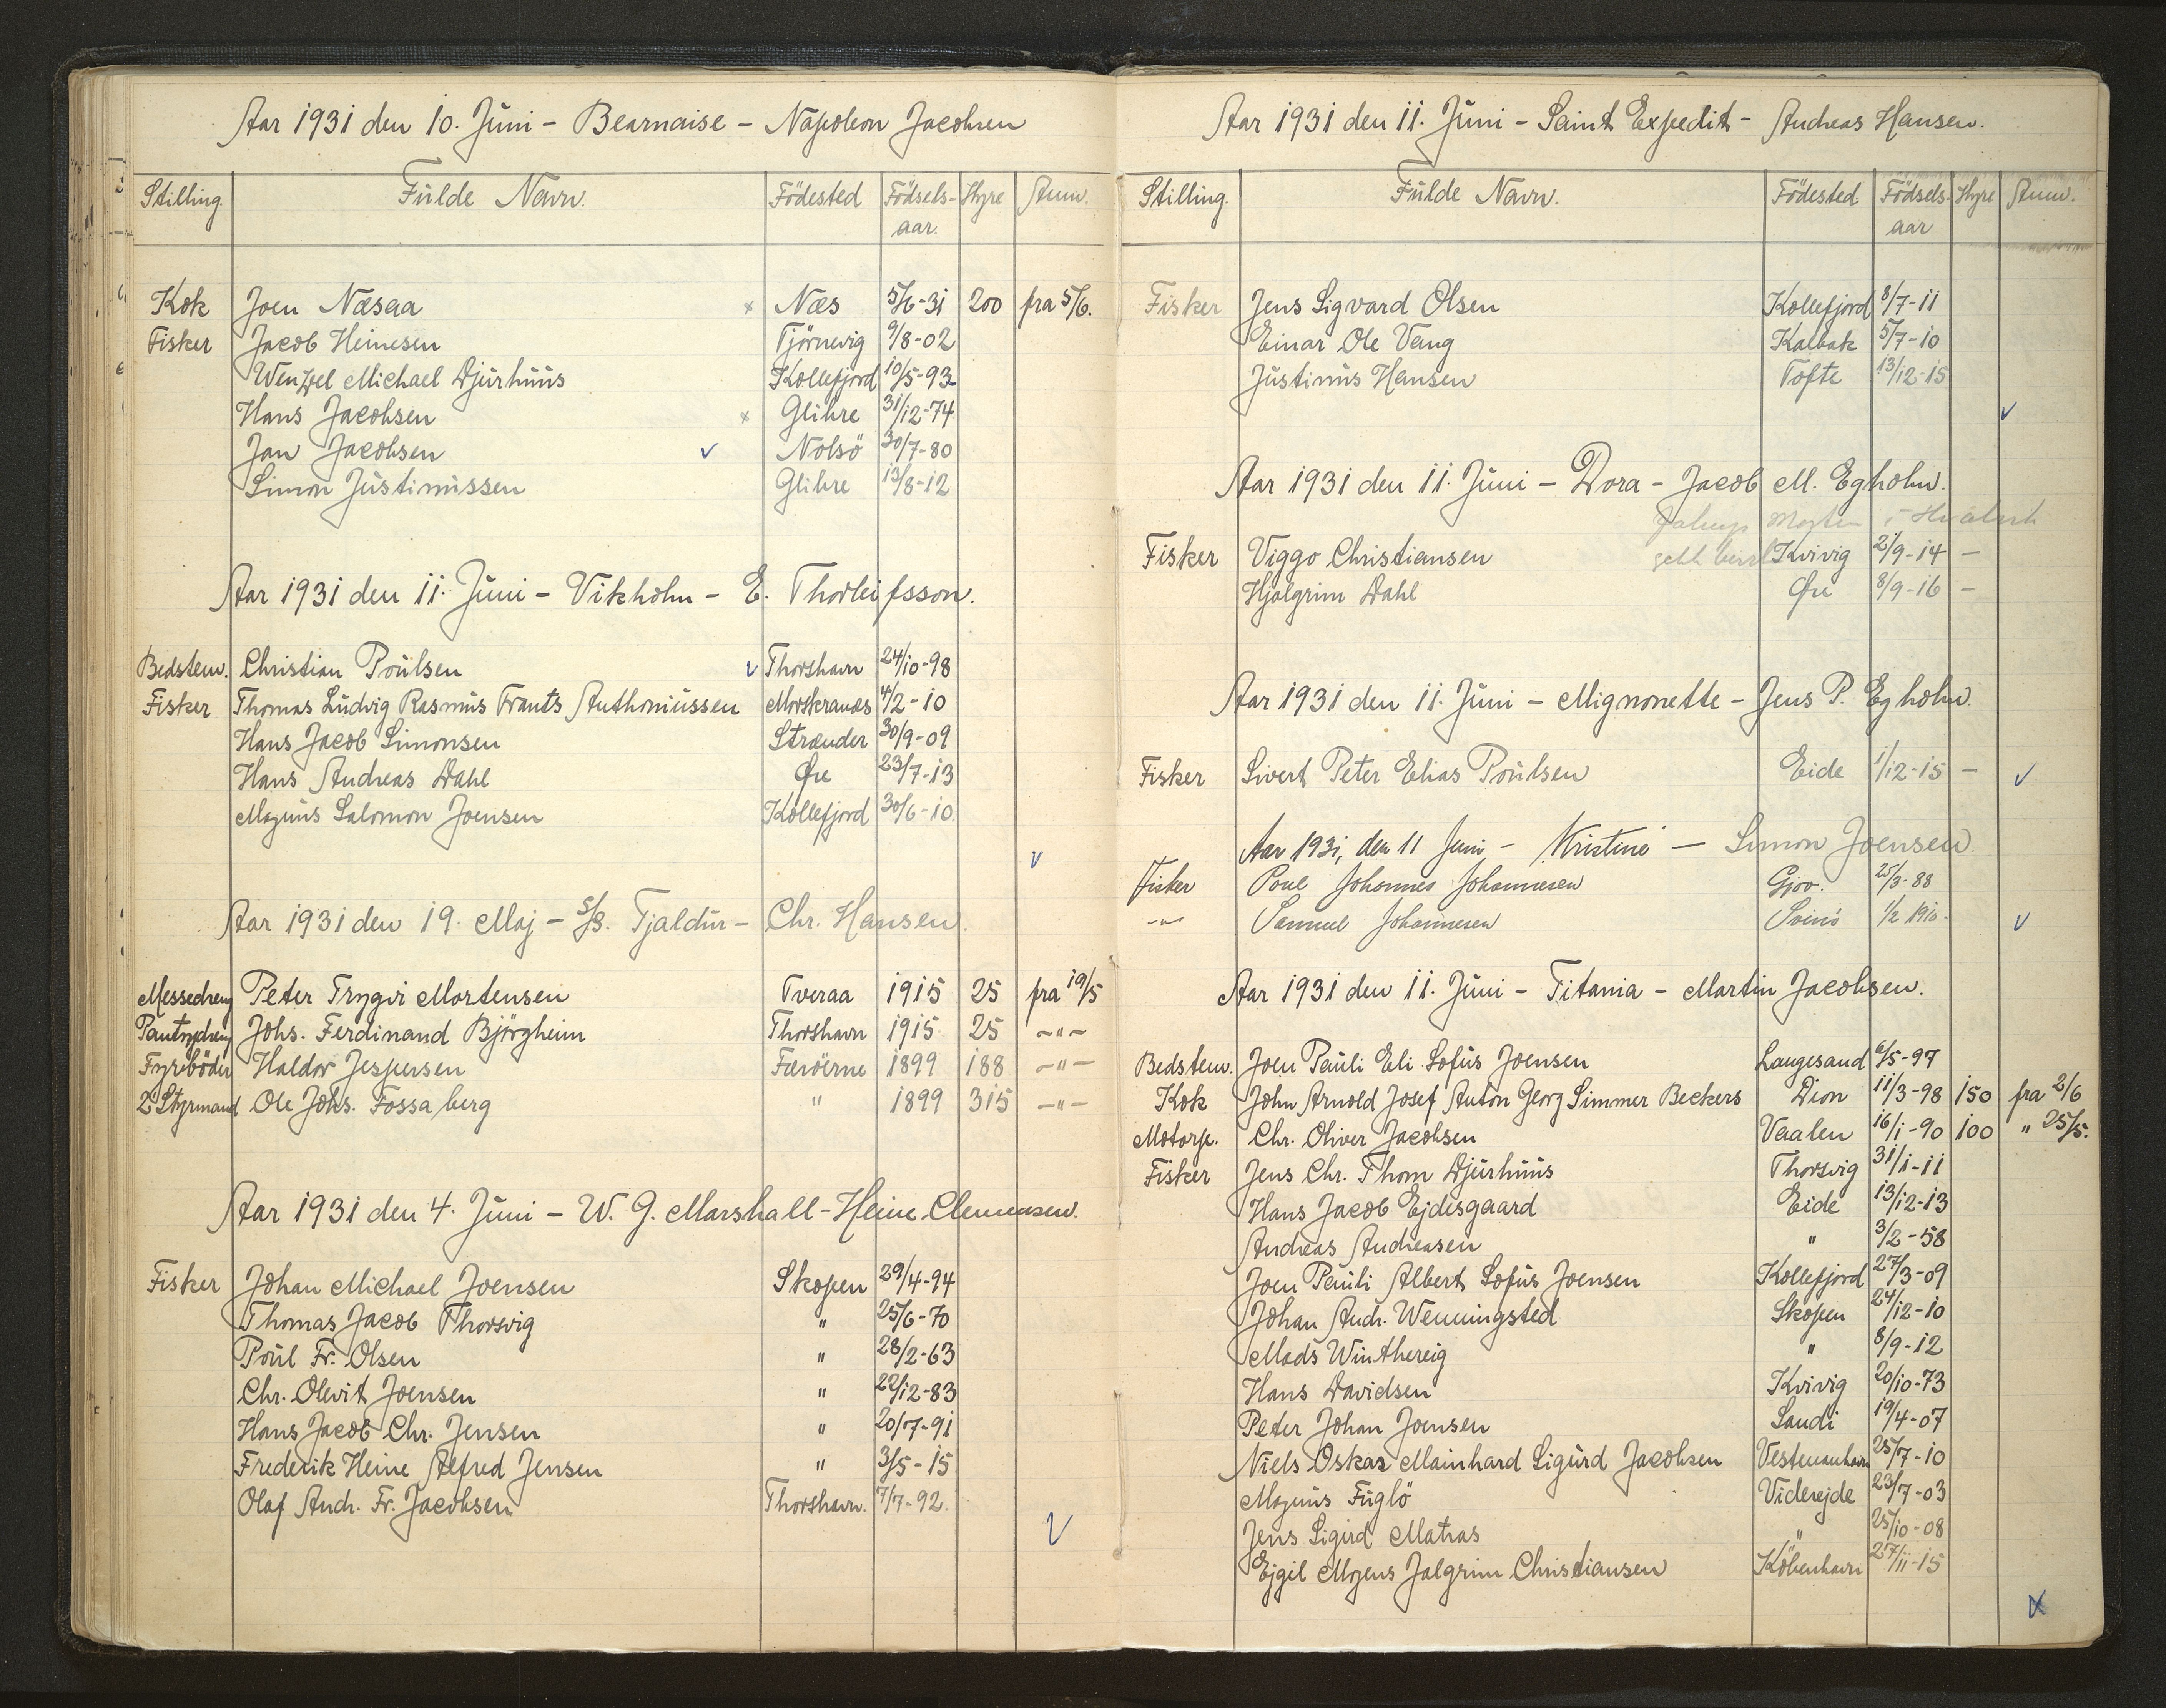 Aar 1931 den 10. Juni - Bearnaise - Napoleon Jacobsen
Stilling Fulde Navn. Födested Födsels-aar. Hyre Anm.
Kok Joen Næsaa x Næs 5/6-31 200 fra 5/6.
Fisker Jacob Heinesen Tjörnevig 9/8-02
Wenzel Michael Djurhuus Kollefjord 10/5-93
Hans Jacobsen x Glibre 31/12-74
Jan Jacobsen ✓ Nolsö 30/7-80
Simon Justinussen Glibre 13/8-12
Aar 1931 den 11. Juni - Vikholm - E. Thorleifsson.
Bedstem. Christian Poulsen ✓ Thorshavn 24/10-98
Fisker Thomas Ludvig Rasmus Frants Anthoniussen Morskranes 4/2-10
Hans Jacob Simonsen Strænder 30/9-09
Hans Andreas Dahl Øre 23/7-13
Magnus Salomon Joensen Kollefjord 30/6-10.
✓
Aar 1931 den 19. Maj - s/s. Tjaldur - Chr. Hansen.
Messedreng Peter Trygvi Mortensen Tveraa 1915 25 fra 19/5
Pantrydreng Johs. Ferdinand Björgheim Thorshavn 1915 25 -"-
Fyrböder Haldor Jespersen Færöerne 1899 188 -"-
2. Styrmand Ole Johs. Fossaberg " 1899 315 -"-
Aar 1931 den 4. Juni - W. G. Marshall - Heine Clemensen.
Fisker Johan Michael Joensen Skopen 29/4-94
Thomas Jacob Thorsvig " 25/6-70
Poul Fr. Olsen " 28/2-63
Chr. Olevit Joensen " 22/12-83
Hans Jacob Chr. Jensen " 20/7-91
Frederik Heine Alfred Jensen " 3/5-15
Olaf Andr. Fr. Jacobsen Thorshavn. 7/7-92.
✓
Aar 1931 den 11. Juni - Saint Expedit - Andreas Hansen.
Stilling. Fulde Navn. Födested Födsels-aar Hyre Anm.
Fisker Jens Sigvard Olsen Kollefjord 8/7-11
Einar Ole Vang Kalbak 5/7-10
Justinus Hansen Tofte 13/12-15
✓
Aar 1931 den 11. Juni - Dora - Jacob M. Egholm.
Fisker Viggo Christiansen Kvivig 2/9-14 -
Hjalgrim Dahl Øre 8/9-16 -
Aar 1931 den 11. Juni - Mignonette - Jens P. Egholm.
Fisker Sivert Peter Elias Poulsen Eide 1/12-15 - ✓
Aar 1931, den 11 Juni - Kristine - Simon Joensen.
Fisker Poul Johannes Johannesen Gjov. 25/3-88
-"- Samuel Johannesen Svinö 1/2 1910. ✓
Aar 1931 den 11. Juni - Titania - Martin Jacobsen.
Bedstem. Joen Pauli Eli Sofus Joensen Langesand 6/5-97
Kok John Arnold Josef Anton Georg Simmer Beckers Dion 11/3-98 150 fra 2/6
Motorp. Chr. Oliver Jacobsen Vaalen 16/1-90 100 " 25/5.
Fisker Jens Chr. Thom Djurhuus Thorsvig 31/1-11
Hans Jacob Ejdesgaard Eide 13/12-13
Andreas Andreasen " 3/2-58
Joen Pauli Albert Sofus Joensen Kollefjord 27/3-09
Johan Andr. Wenningsted Skopen 24/12-10
Mads Winthereig " 8/9-12
Hans Davidsen Kvivig 20/10-73
Peter Johan Joensen Sandi 19/4-07
Niels Oskar Mainhard Sigurd Jacobsen Vestmanhavn 25/7-10
Magnus Fuglö Viderejde 23/7-03
Jens Sigurd Matras " 25/10-08
Ejgil Mogens Jalgrim Christiansen Köbenhavn 27/11-15